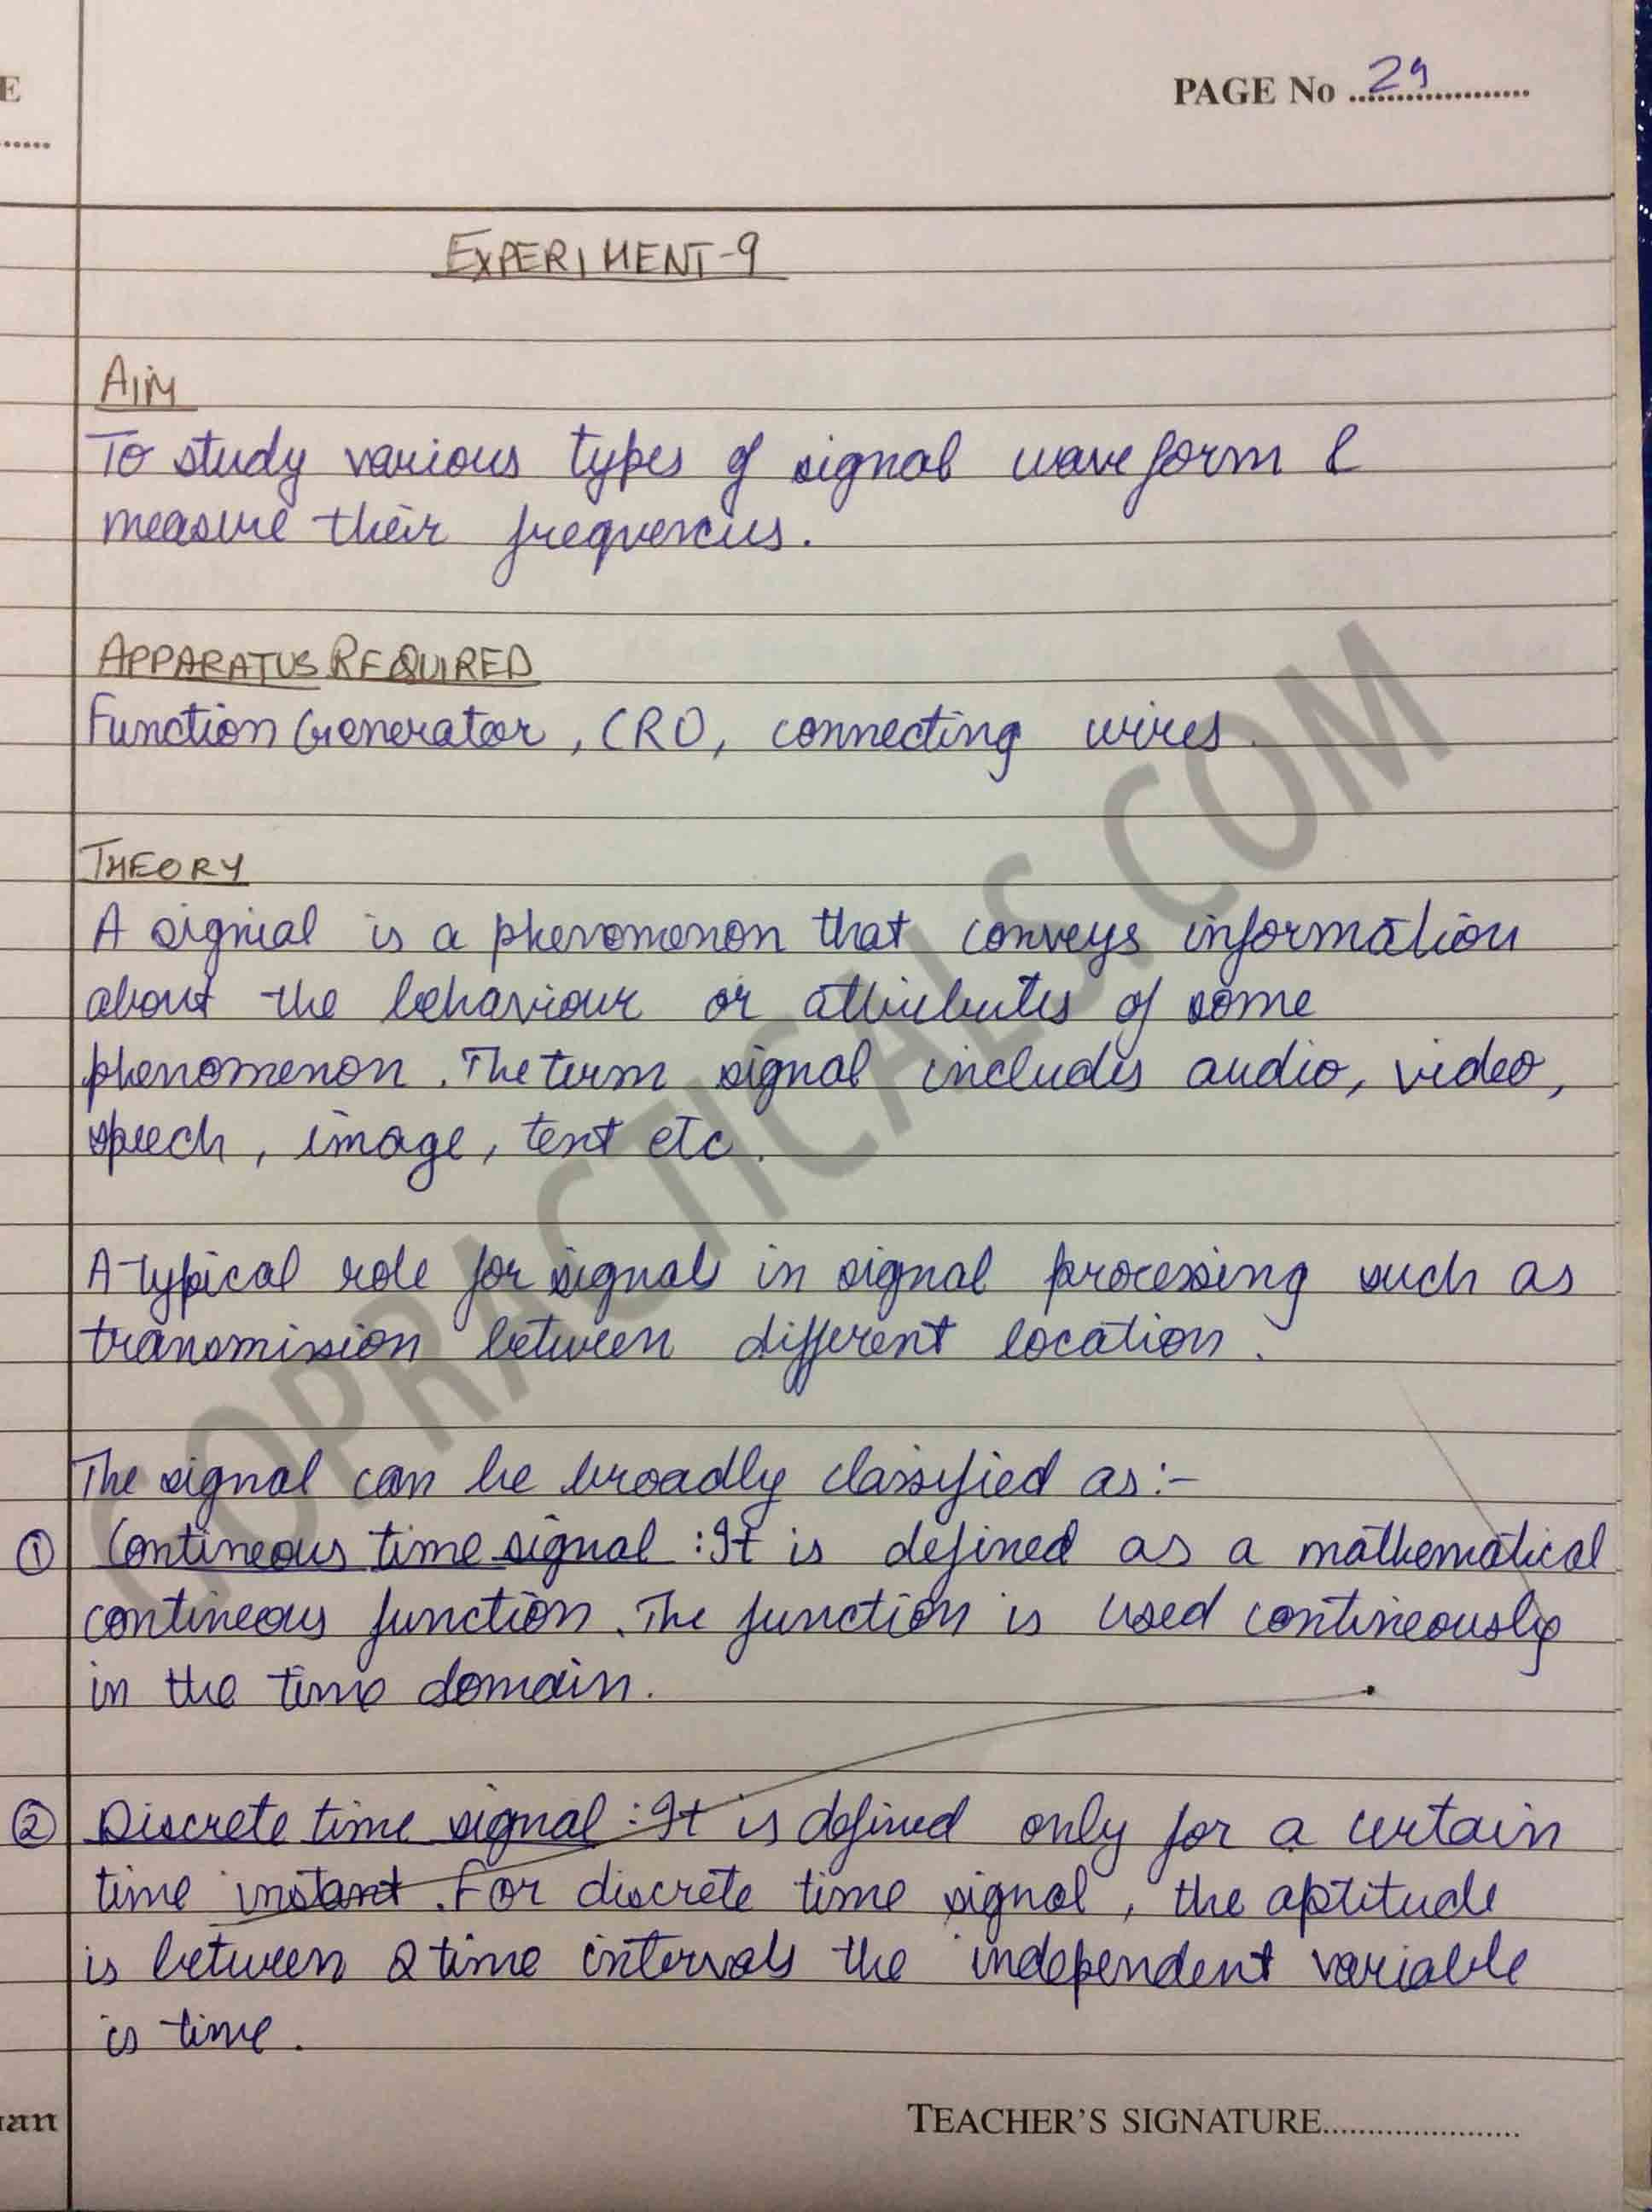 E
PAGE No 29
EXPERIMENT-9
AIM
To study various types of signal waveform &
measure their frequencies.
APPARATUS REQUIRED
Function Generator, CRO, connecting wires.
THEORY
A signial is a phenomenon that conveys information
about the behaviour or attributes of some
phenomenon. The term signal includes audio, video,
speech, image, text etc.
A typical role for signals in signal processing such as
transmission between different location.
The signal can be broadly classified as:-
① Contineous time signal : It is defined as a mathematical
contineous function. The function is used contineously
in the time domain.
② Discrete time signal : It is defined only for a certain
time instant. For discrete time signal, the aptitude
is between 2 time intervals the independent variable
is time.
TEACHER'S SIGNATURE
GOPRACTICALS.COM